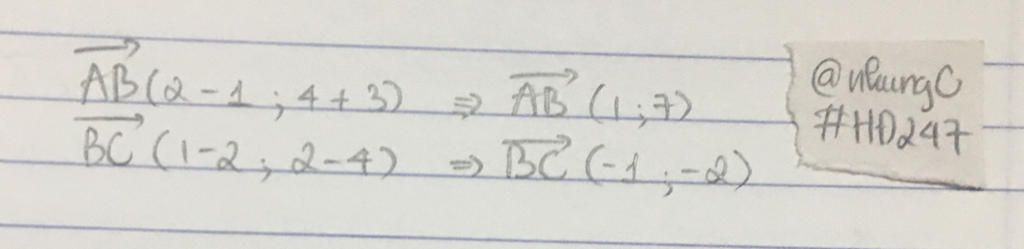 AB(2-1 ; 4+3) ⇒ AB (1 ; 7)
BC (1-2 ; 2-4) ⇒ BC (-1 ; -2)
@nhungC
#HD247